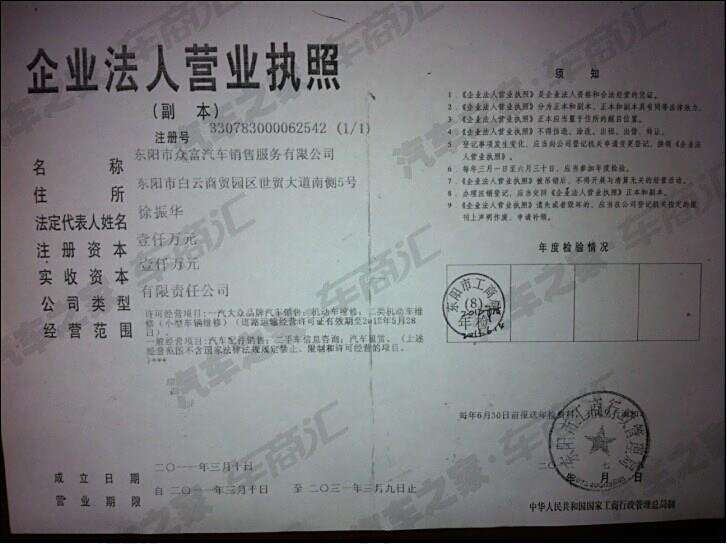 企业法人营业执照
（副 本）
注册号 330783000062542 (1/1)
名称 东阳市众富汽车销售服务有限公司
住所 东阳市白云商贸园区世贸大道南侧5号
法定代表人姓名 徐振华
注册资本 壹仟万元
实收资本 壹仟万元
公司类型 有限责任公司
经营范围 许可经营项目：一汽大众品牌汽车销售；机动车维修：二类机动车维
修（小型车辆维修）（道路运输经营许可证有效期至2012年5月28
日）。
一般经营项目：汽车配件销售；二手车信息咨询；汽车租赁。（上述
经营范围不含国家法律法规规定禁止、限制和许可经营的项目。）
成立日期 二〇一一年三月十日
营业期限 自二〇一一年三月十日 至二〇三一年三月九日止
须知
1．《企业法人营业执照》是企业法人资格和合法经营的凭证。
2．《企业法人营业执照》分为正本和副本，正本和副本具有同等法律效力。
3．《企业法人营业执照》正本应当置于住所的醒目位置。
4．《企业法人营业执照》不得伪造、涂改、出租、出借、转让。
5．登记事项发生变化，应当向公司登记机关申请变更登记，换领《企业法
人营业执照》。
6．每年三月一日至六月三十日，应当参加年度检验。
7．《企业法人营业执照》被吊销后，不得开展与清算无关的经营活动。
8．办理注销登记，应当交回《企业法人营业执照》正本和副本。
9．《企业法人营业执照》遗失或者毁坏的，应当在公司登记机关指定的报
刊上声明作废，申请补领。
年度检验情况
东阳市工商局
(8)
年检
每年6月30日前报送年检材料
东阳市工商行政管理局
月 日
中华人民共和国国家工商行政管理总局制
汽车之家·车商汇